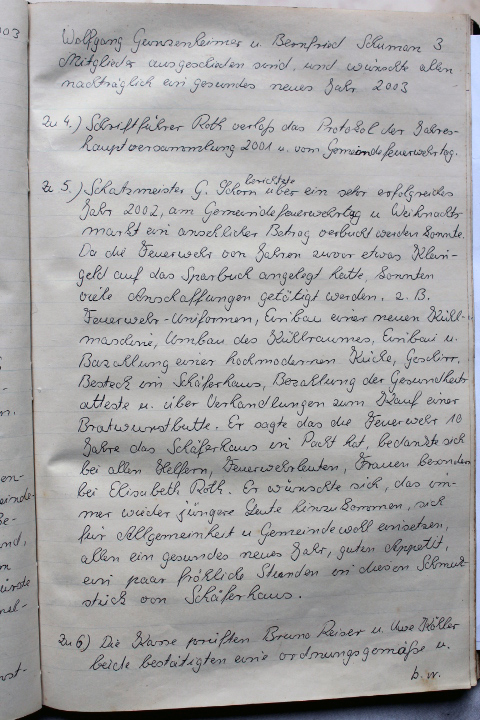 003
Wolfgang Gunzenheimer u. Bernfried Schuman 3
Mitglieder ausgeschieden sind, und wünschte allen
nachträglich ein gesundes neues Jahr 2003
Zu 4.) Schriftführer Roth verlaß das Protokol der Jahres-
hauptversammlung 2001 u. vom Gemeindefeuerwehrtag.
Zu 5.) Schatsmeister G. Khorn berichtete über ein sehr erfolgreiches
Jahr 2002, am Gemeindefeuerwehrtag u Weihnachts
markt ein ansehlicher Betrag verbucht werden konnte.
Da die Feuerwehr von Jahren zuvor etwas Klein-
geld auf das Sparbuch angelegt hatte, konnten
viele Anschaffungen getötigt werden. z. B.
Feuerwehr-Uniformen, Einbau einer neuen Kühl-
maschine, Umbau des Kühlraumes, Einbau u.
Bazahlung einer hochmodernen Küche, Geschirr,
Besteck im Schäferhaus, Bezahlung der Gesundheits
atteste u. über Verhandlungen zum Kauf einer
Bratwurstbutte. Er sagte das die Feuerwehr 10
Jahre das Schäferhaus in Pacht hat, bedankte sich
bei allen Helfern, Feuerwehrleuten, Frauen besonders
bei Elisabeth Roth. Er wünschte sich, das im-
mer wieder jüngere Leute hinzu kommen, sich
für Allgemeinheit u Gemeindewohl einsetzen,
allen ein gesundes neues Jahr, guten Appetit,
ein paar fröhliche Stunden in diesen Schmuck
stück von Schäferhaus.
Zu 6) Die Kasse prüften Bruno Reiser u. Uwe Köhler
beide bestätigten eine ordnungsgemäße u.
b. w.